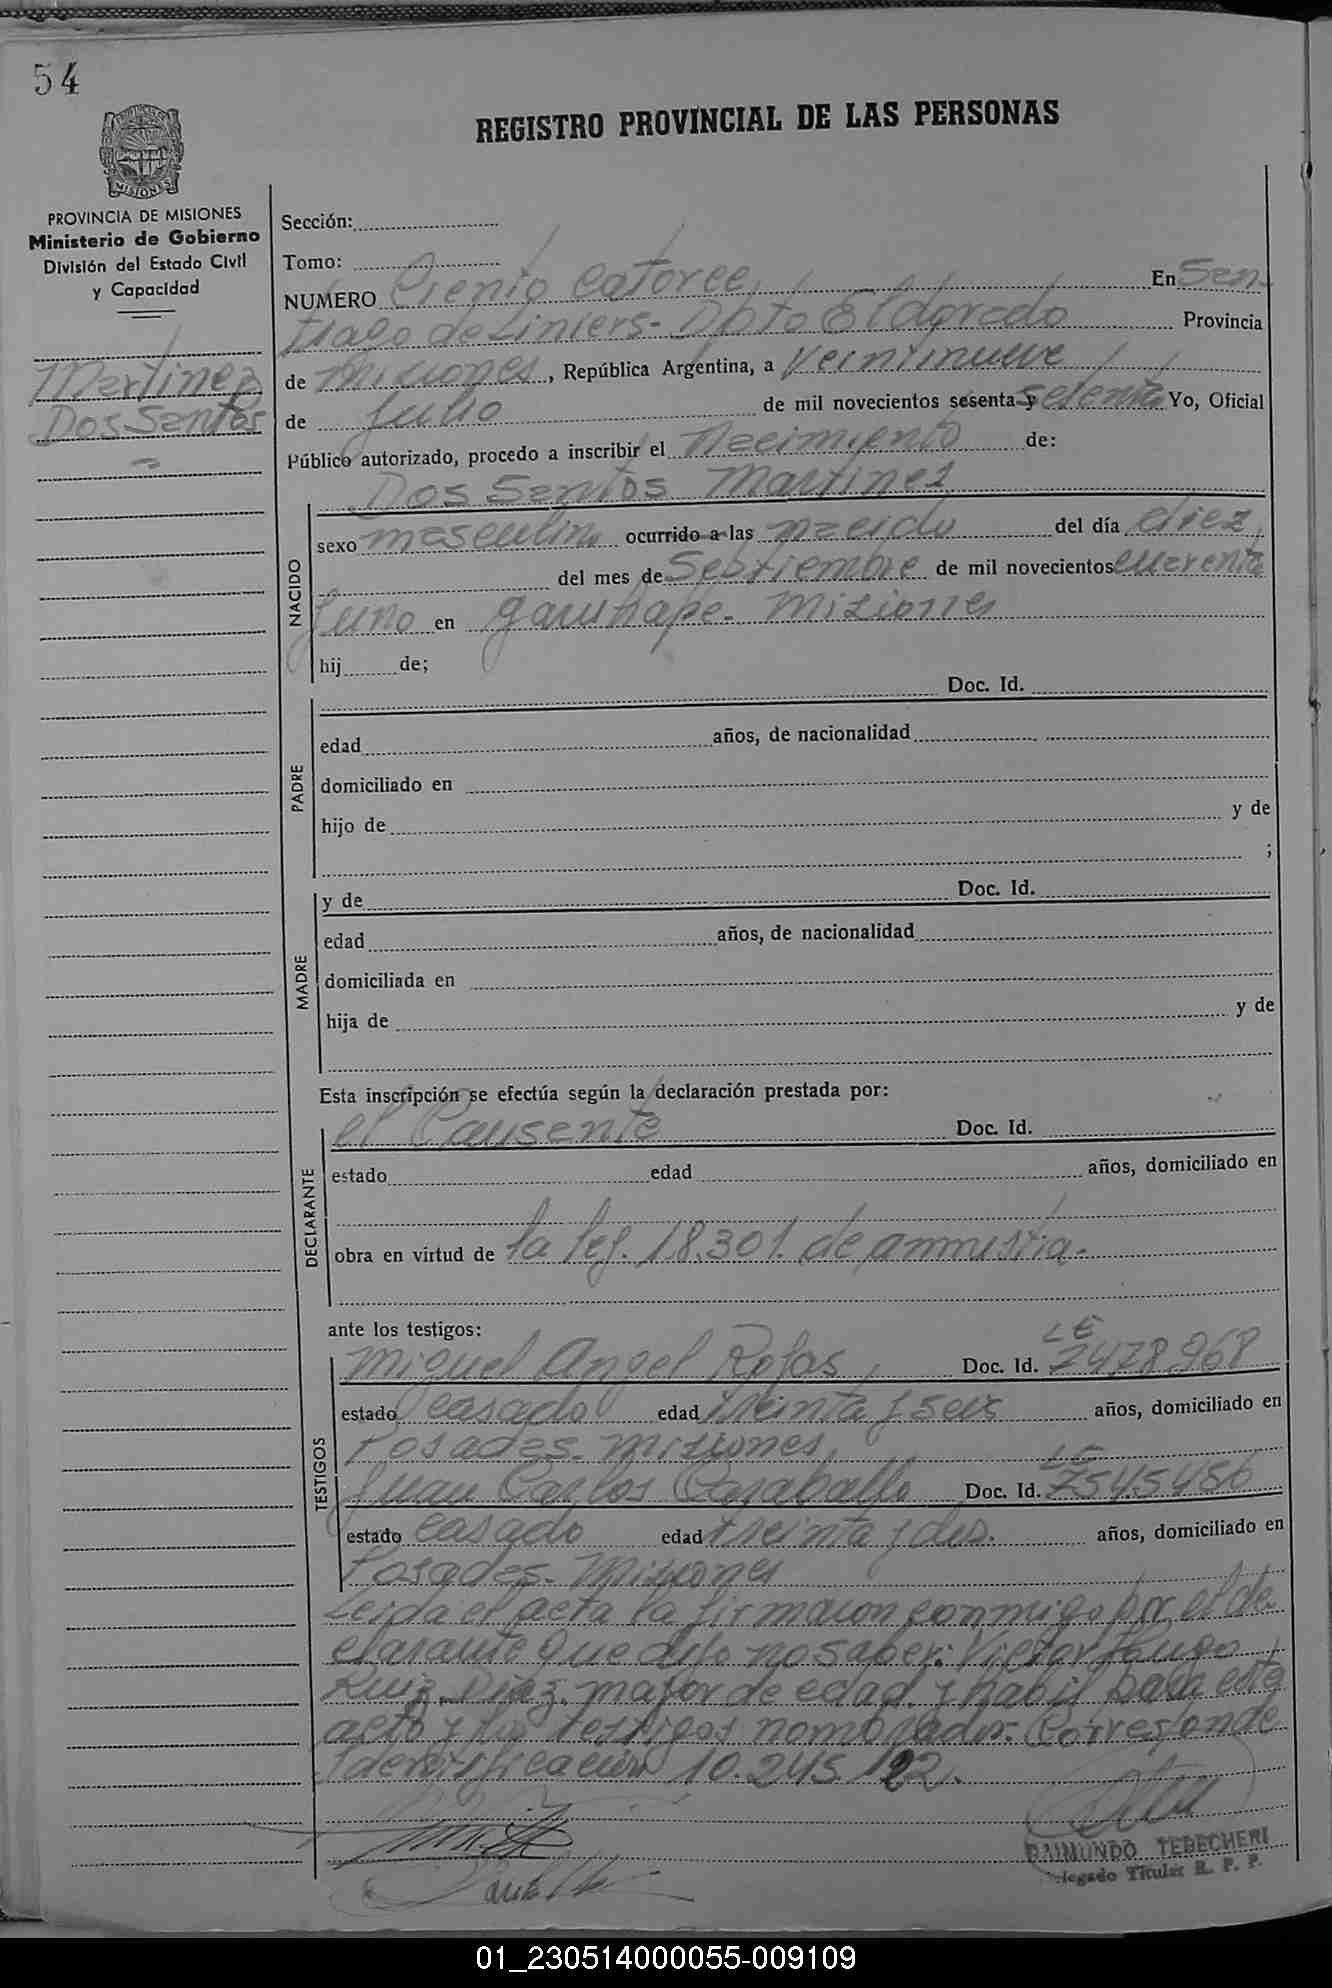 54
REGISTRO PROVINCIAL DE LAS PERSONAS
MISIONES
PROVINCIA DE MISIONES
Ministerio de Gobierno
División del Estado Civil
y Capacidad
Martinez
Dos Santos
Sección:
Tomo:
NUMERO Ciento Catorce En San-
tiago de Liniers- Dpto Eldorado Provincia
de Misiones, República Argentina, a Veintinueve
de Julio de mil novecientos sesenta y setenta Yo, Oficial
Público autorizado, procedo a inscribir el Nacimiento de:
NACIDO
Dos Santos Martinez
sexo masculino ocurrido a las nacido del día diez
del mes de Septiembre de mil novecientos cuarenta
y uno en Garuhape- Misiones
hij de;
PADRE
Doc. Id.
edad años, de nacionalidad
domiciliado en
hijo de y de
;
MADRE
y de Doc. Id.
edad años, de nacionalidad
domiciliada en
hija de y de
Esta inscripción se efectúa según la declaración prestada por:
DECLARANTE
el Causente Doc. Id.
estado edad años, domiciliado en
obra en virtud de la ley. 18.301. de amnistia.
ante los testigos:
TESTIGOS
Miguel Angel Rojas, Doc. Id. LE 7478.968
estado casado edad treinta y seis años, domiciliado en
Posadas- Misiones,
Juan Carlos Caraballo Doc. Id. LE 7545456
estado casado edad treinta y dos. años, domiciliado en
Posadas- Misiones
Leida el acta la firman conmigo por el de
clarante que dijo no saber: Victor Hugo
Ruiz Diaz, mayor de edad y habil para este
acto y los testigos nombrados: Corresponde
Identificación 10.245/22.
RAIMUNDO TEBECHERI
Delegado Titular R. P. P.
01_230514000055-009109